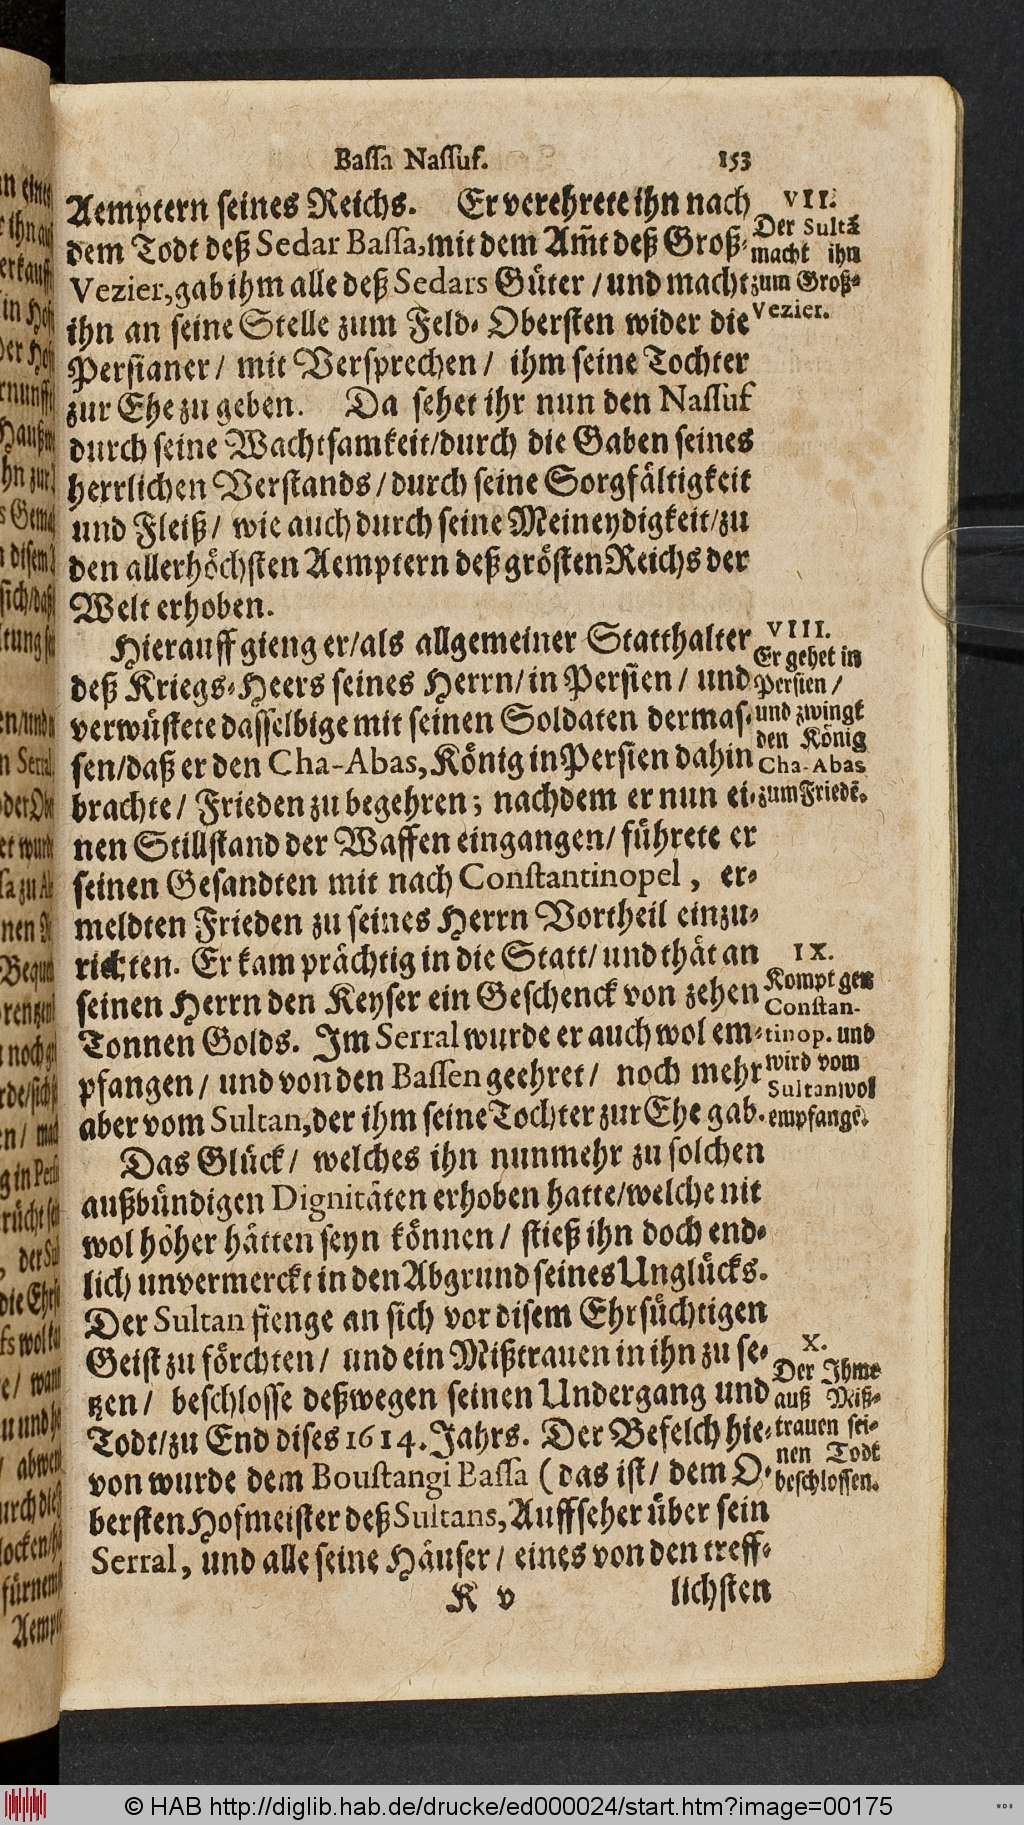 Bassa Nassuf. 153
Aemptern seines Reichs. Er verehrete ihn nach
dem Todt deß Sedar Bassa, mit dem Am̃t deß Groß-
Vezier, gab ihm alle deß Sedars Güter / und macht
ihn an seine Stelle zum Feld-Obersten wider die
Persianer / mit Versprechen / ihm seine Tochter
zur Ehe zu geben. Da sehet ihr nun den Nassuf
durch seine Wachtsamkeit/durch die Gaben seines
herrlichen Verstands / durch seine Sorgfältigkeit
und Fleiß / wie auch durch seine Meineydigkeit/zu
den allerhöchsten Aemptern deß grösten Reichs der
Welt erhoben.
VII.
Der Sultã
macht ihn
zum Groß-
Vezier.
Hierauff gieng er/als allgemeiner Statthalter
deß Kriegs-Heers seines Herrn/in Persien / und
verwüstete dasselbige mit seinen Soldaten dermas-
sen/daß er den Cha-Abas, König in Persien dahin
brachte / Frieden zu begehren; nachdem er nun ei-
nen Stillstand der Waffen eingangen / führete er
seinen Gesandten mit nach Constantinopel, er-
meldten Frieden zu seines Herrn Vortheil einzu-
richten. Er kam prächtig in die Statt/und thät an
seinen Herrn den Keyser ein Geschenck von zehen
Tonnen Golds. Im Serral wurde er auch wol em-
pfangen / und von den Bassen geehret / noch mehr
aber vom Sultan, der ihm seine Tochter zur Ehe gab.
VIII.
Er gehet in
Persien /
und zwingt
den König
Cha-Abas
zum Friedẽ.
IX.
Kompt gen
Constan-
tinop. und
wird vom
Sultan wol
empfangẽ.
Das Glück / welches ihn nunmehr zu solchen
außbündigen Dignitäten erhoben hatte/welche nit
wol höher hätten seyn können / stieß ihn doch end-
lich unvermerckt in den Abgrund seines Unglücks.
Der Sultan fienge an sich vor disem Ehrsüchtigen
Geist zu förchten / und ein Mißtrauen in ihn zu se-
tzen / beschlosse deßwegen seinen Undergang und
Todt/zu End dises 1614. Jahrs. Der Befelch hie-
von wurde dem Boustangi Bassa (das ist / dem O-
bersten Hofmeister deß Sultans, Auffseher über sein
Serral, und alle seine Häuser / eines von den treff-
X.
Der Ihme
auß Miß-
trauen sei-
nen Todt
beschlossen.
K v lichsten
© HAB http://diglib.hab.de/drucke/ed000024/start.htm?image=00175